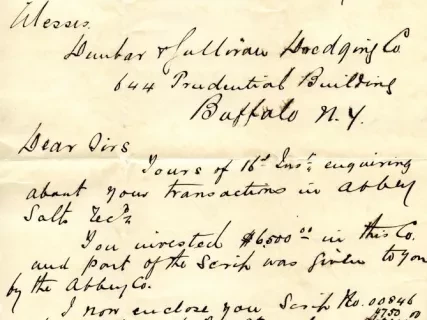 Messrs.
Dunbar & Sullivan Dredging Co
644 Prudential Building
Buffalo N.Y.
Dear Sirs
Yours of 16th Inst. enquiring
about your transactions in Abbey
Salts
You invested $6500 00 in this Co.
and part of the Scrip was given to you
by the Abbey Co.
I now enclose you Scrip No. 00846
$750